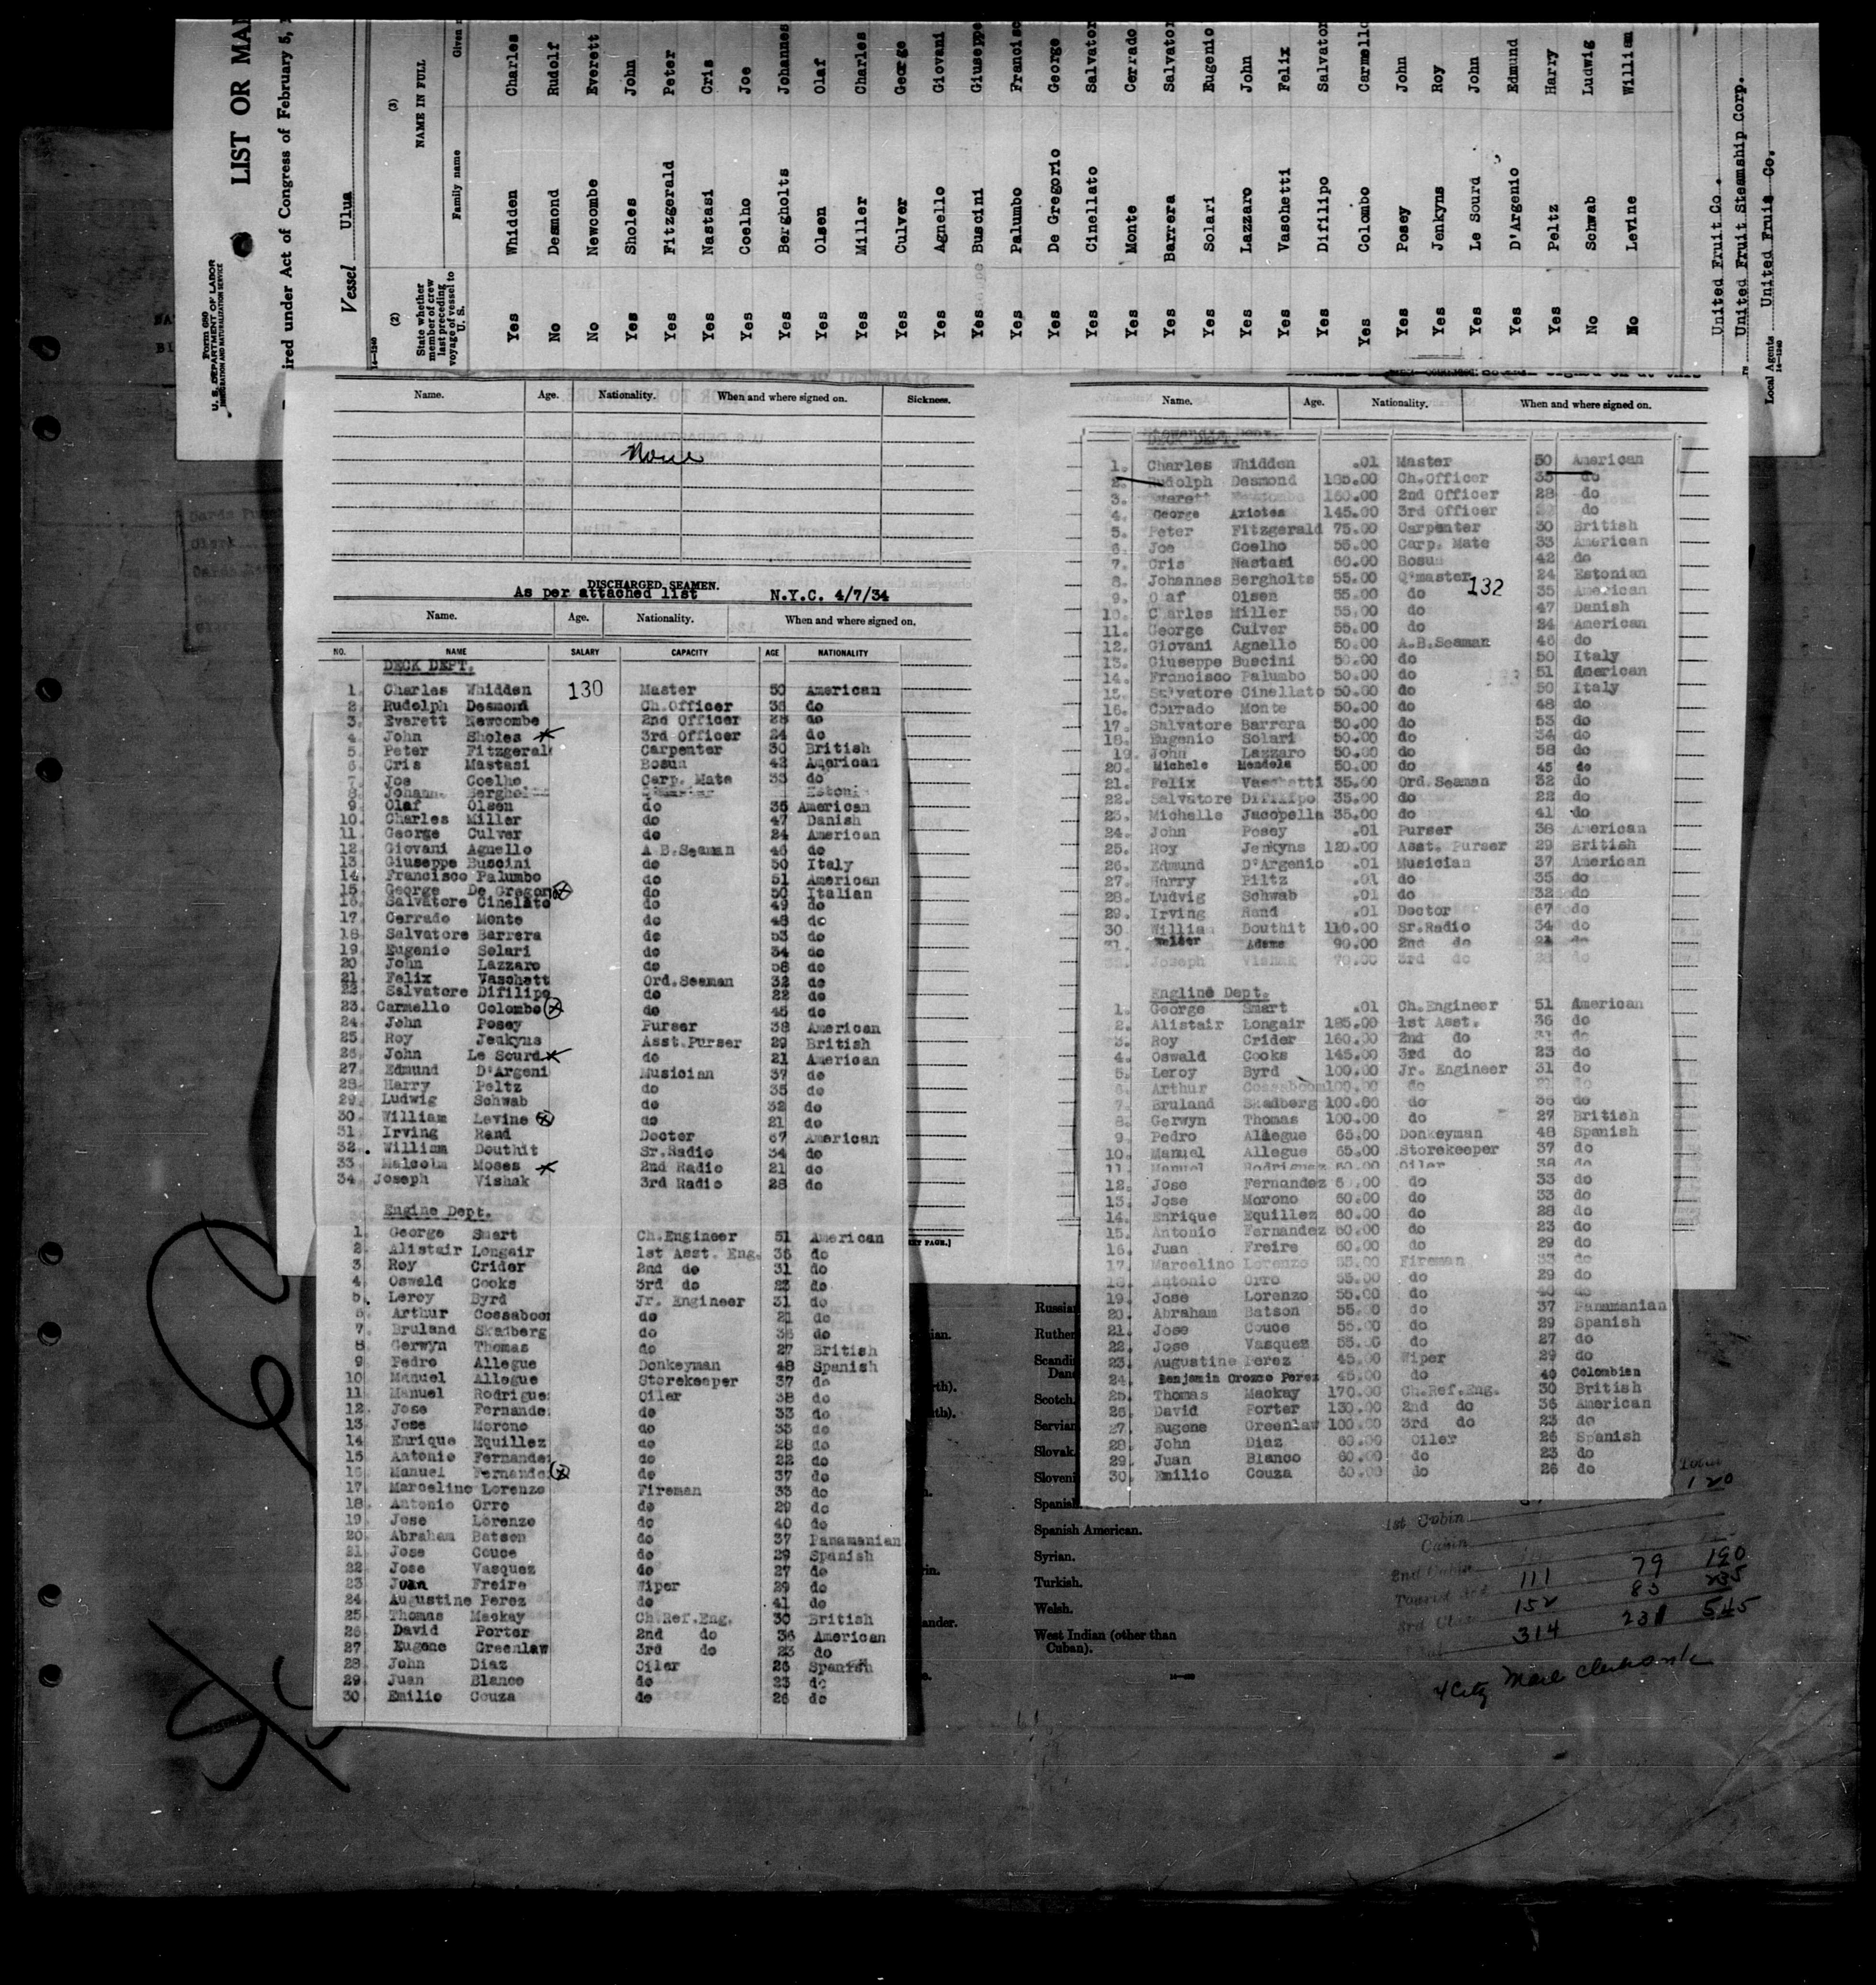 Form 680
U. S. DEPARTMENT OF LABOR
IMMIGRATION AND NATURALIZATION SERVICE
LIST OR MA
ired under Act of Congress of February 5,
Vessel Ulua
14—1240
(2) (3)
State whether member of crew last preceding voyage of vessel to U. S.
NAME IN FULL
Family name Given
Yes Whidden Charles
No Desmond Rudolf
No Newcombe Everett
Yes Sholes John
Yes Fitzgerald Peter
Yes Nastasi Cris
Yes Coelho Joe
Yes Bergholts Johannes
Yes Olsen Olaf
Yes Miller Charles
Yes Culver George
Yes Agnello Giovani
Yes Buscini Giuseppe
Yes Palumbo Francisc
Yes De Gregorio George
Yes Cinellato Salvator
Yes Monte Cerrado
Yes Barrera Salvator
Yes Solari Eugenio
Yes Lazzaro John
Yes Vaschetti Felix
Yes Difilipo Salvator
Yes Colombo Carmello
Yes Posey John
Yes Jenkyns Roy
Yes Le Sourd John
Yes D'Argenio Edmund
Yes Peltz Harry
No Schwab Ludwig
No Levine William
United Fruit Co.
United Fruit Steamship Corp.
Local Agents United Fruit Co.
14—1240
Name. Age. Nationality. When and where signed on. Sickness.
None
DISCHARGED SEAMEN.
As per attached list N.Y.C. 4/7/34
Name. Age. Nationality. When and where signed on.
NO. NAME SALARY CAPACITY AGE NATIONALITY
DECK DEPT.
1. Charles Whidden 130 Master 50 American
2. Rudolph Desmond Ch.Officer 35 do
3. Everett Newcombe 2nd Officer 28 do
4. John Sholes 3rd Officer 24 do
5. Peter Fitzgeral Carpenter 30 British
6. Cris Mastasi Bosun 42 American
7. Joe Coelho Carp. Mate 33 do
8. Johann Bergho Estoni
9. Olaf Olsen do 35 American
10. Charles Miller do 47 Danish
11. George Culver do 24 American
12. Giovani Agnello A B.Seaman 46 do
13. Giuseppe Buscini do 50 Italy
14. Francisco Palumbo do 51 American
15. George De Gregor do 50 Italian
16. Salvatore Cinelato do 49 do
17. Cerrado Monte do 48 do
18. Salvatore Barrera do 53 do
19. Eugenio Solari do 34 do
20 John Lazzaro do 58 do
21. Felix Vaschett Ord.Seaman 32 do
22. Salvatore Difilipo do 22 do
23. Carmello Colombo do 45 do
24. John Posey Purser 38 American
25. Roy Jenkyns Asst.Purser 29 British
26. John Le Sourd do 21 American
27. Edmund D'Argeni Musician 37 do
28. Harry Peltz do 35 do
29. Ludwig Schwab do 32 do
30. William Levine do 21 do
31. Irving Rand Doctor 67 American
32. William Douthit Sr.Radio 34 do
33. Malcolm Moses 2nd Radio 21 do
34. Joseph Vishak 3rd Radio 28 do
Engine Dept.
1. George Smart Ch.Engineer 51 American
2. Alistair Longair 1st Asst. Eng. 36 do
3. Roy Crider 2nd do 31 do
4. Oswald Cooks 3rd do 23 do
5. Leroy Byrd Jr. Engineer 31 do
6. Arthur Cossaboo do 21 do
7. Bruland Skadberg do 36 do
8. Gerwyn Thomas do 27 British
9. Pedro Allegue Donkeyman 48 Spanish
10 Manuel Allegue Storekeeper 37 do
11 Manuel Rodrigue Oiler 38 do
12. Jose Fernande do 33 do
13. Jose Morono do 33 do
14 Enrique Equillez do 28 do
15 Antonio Fernande do 22 do
16 Manuel Fernande do 37 do
17 Marcelino Lorenzo Fireman 33 do
18. Antonio Orro do 29 do
19. Jose Lorenzo do 40 do
20. Abraham Batson do 37 Panamanian
21 Jose Couce do 29 Spanish
22 Jose Vasquez do 27 do
23 Juan Freire Wiper 29 do
24. Augustine Perez do 41 do
25. Thomas Mackay Ch.Ref.Eng. 30 British
26. David Porter 2nd do 36 American
27. Eugene Greenlaw 3rd do 23 do
28. John Diaz Oiler 26 Spanish
29. Juan Blanco do 23 do
30. Emilio Couza do 26 do
Name. Age. Nationality. When and where signed on.
1. Charles Whidden .01 Master 50 American
2. Rudolph Desmond 185.00 Ch.Officer 35 do
3. Everett Newcombe 160.00 2nd Officer 28 do
4. George Axiotes 145.00 3rd Officer do
5. Peter Fitzgerald 75.00 Carpenter 30 British
6. Joe Coelho 55.00 Carp. Mate 33 American
7. Cris Nastasi 60.00 Bosun 42 do
8. Johannes Bergholts 55.00 Q'master 132 24 Estonian
9. Olaf Olsen 55.00 do 35 American
10. Charles Miller 55.00 do 47 Danish
11. George Culver 55.00 do 24 American
12. Giovani Agnello 50.00 A.B.Seaman 46 do
13. Giuseppe Buscini 50.00 do 50 Italy
14. Francisco Palumbo 50.00 do 51 American
15. Salvatore Cinellato 50.00 do 50 Italy
16. Corrado Monte 50.00 do 48 do
17. Salvatore Barrera 50.00 do 53 do
18. Eugenio Solari 50.00 do 34 do
19. John Lazzaro 50.00 do 58 do
20. Michele Mendola 50.00 do 45 do
21. Felix Vaschetti 35.00 Ord.Seaman 32 do
22. Salvatore Difilipo 35.00 do 22 do
23. Michelle Jacopella 35.00 do 41 do
24. John Posey .01 Purser 38 American
25. Roy Jenkyns 120.00 Asst. Purser 29 British
26. Edmund D'Argenio .01 Musician 37 American
27. Harry Piltz .01 do 35 do
28. Ludvig Schwab .01 do 32 do
29. Irving Rand .01 Doctor 67 do
30 Willia Douthit 110.00 Sr.Radio 34 do
31. Walter Adams 90.00 2nd do 21 do
32. Joseph Vishak 70.00 3rd do 28 do
Engline Dept.
1. George Smart .01 Ch.Engineer 51 American
2. Alistair Longair 185.00 1st Asst. 36 do
3. Roy Crider 160.00 2nd do 31 do
4. Oswald Cooks 145.00 3rd do 23 do
5. Leroy Byrd 100.00 Jr. Engineer 31 do
6. Arthur Cossaboom 100.00 do 21 do
7. Bruland Skadberg 100.00 do 36 do
8. Gerwyn Thomas 100.00 do 27 British
9. Pedro Allegue 65.00 Donkeyman 48 Spanish
10. Manuel Allegue 65.00 Storekeeper 37 do
11. Manuel Rodriguez 60.00 Oiler 38 do
12. Jose Fernandez 6 .00 do 33 do
13. Jose Morono 60.00 do 33 do
14. Enrique Equillez 60.00 do 28 do
15. Antonio Fernandez 60.00 do 23 do
16. Juan Freire 60.00 do 29 do
17. Marcelino Lorenzo 55.00 Fireman 33 do
18. Antonio Orro 55.00 do 29 do
19. Jose Lorenzo 55.00 do 40 do
20. Abraham Batson 55. 0 do 37 Panamanian
21. Jose Couce 55.00 do 29 Spanish
22. Jose Vasquez 55.00 do 27 do
23. Augustine Perez 45.00 Wiper 29 do
24. Benjamin Orozco Perez 45.00 do 40 Colombian
25. Thomas Mackay 170.00 Ch.Ref.Eng. 30 British
26. David Porter 130.00 2nd do 36 American
27. Eugene Greenlaw 100.00 3rd do 23 do
28. John Diaz 60.00 Oiler 26 Spanish
29. Juan Blanco 60.00 do 23 do
30. Emilio Couza 60.00 do 26 do
Russia
Ruthe
Scandi
Dan
Scotch.
Servian
Slovak
Sloveni
Spanish
Spanish American.
Syrian.
Turkish.
Welsh.
West Indian (other than Cuban).
Total
120
1st Cabin
Cabin
2nd Cabin 111 79 190
Tourist 3rd 152 83 235
3rd Class 314 231 545